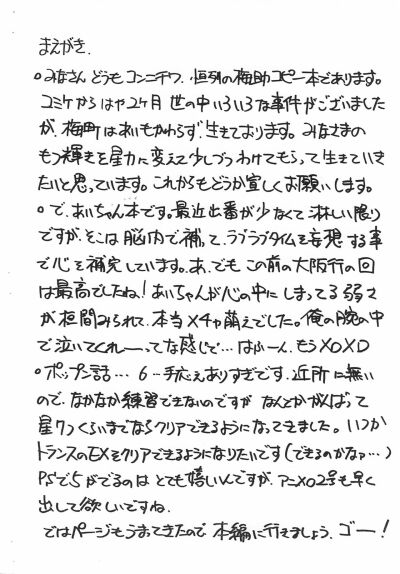 まえがき.
○みなさん どうも コンニチワ. 恒例の梅助コピー本であります。
コミケから はや2ヶ月 世の中いろいろな事件がございました
が, 梅助はあいもかわらず, 生きております。みなさまの
もつ輝きを星力に変えて少しづつわけてもらって生きていき
たいと思っています。これからもどうか宜しくお願いします。
○で, あいちゃん本です。最近出番が少なくて淋しい限り
ですが, そこは脳内で補って, ラブラブタイムを妄想する事
で心を補完しています。あ, でもこの前の大阪行の回
は最高でしたね! あいちゃんが心の中にしまってる弱さ
が垣間みられて, 本当メチャ萌えでした。俺の腕の中
で泣いてくれーーってな感じで…はふーん, もうXOXO
○ポップン話… 6…手応えありすぎです. 近所に無い
ので, なかなか練習できないのですが なんとかがんばって
星7つくらいまでならクリアできるようになってきました。いつか
トランスのEXをクリアできるようになりたいです(できるのかなァ…)
PSで5がでるのは とても嬉しいんですが, アニメの2号も早く
出して欲しいですね.
ではページもうまってきたので 本編に行きましょう. ゴー!